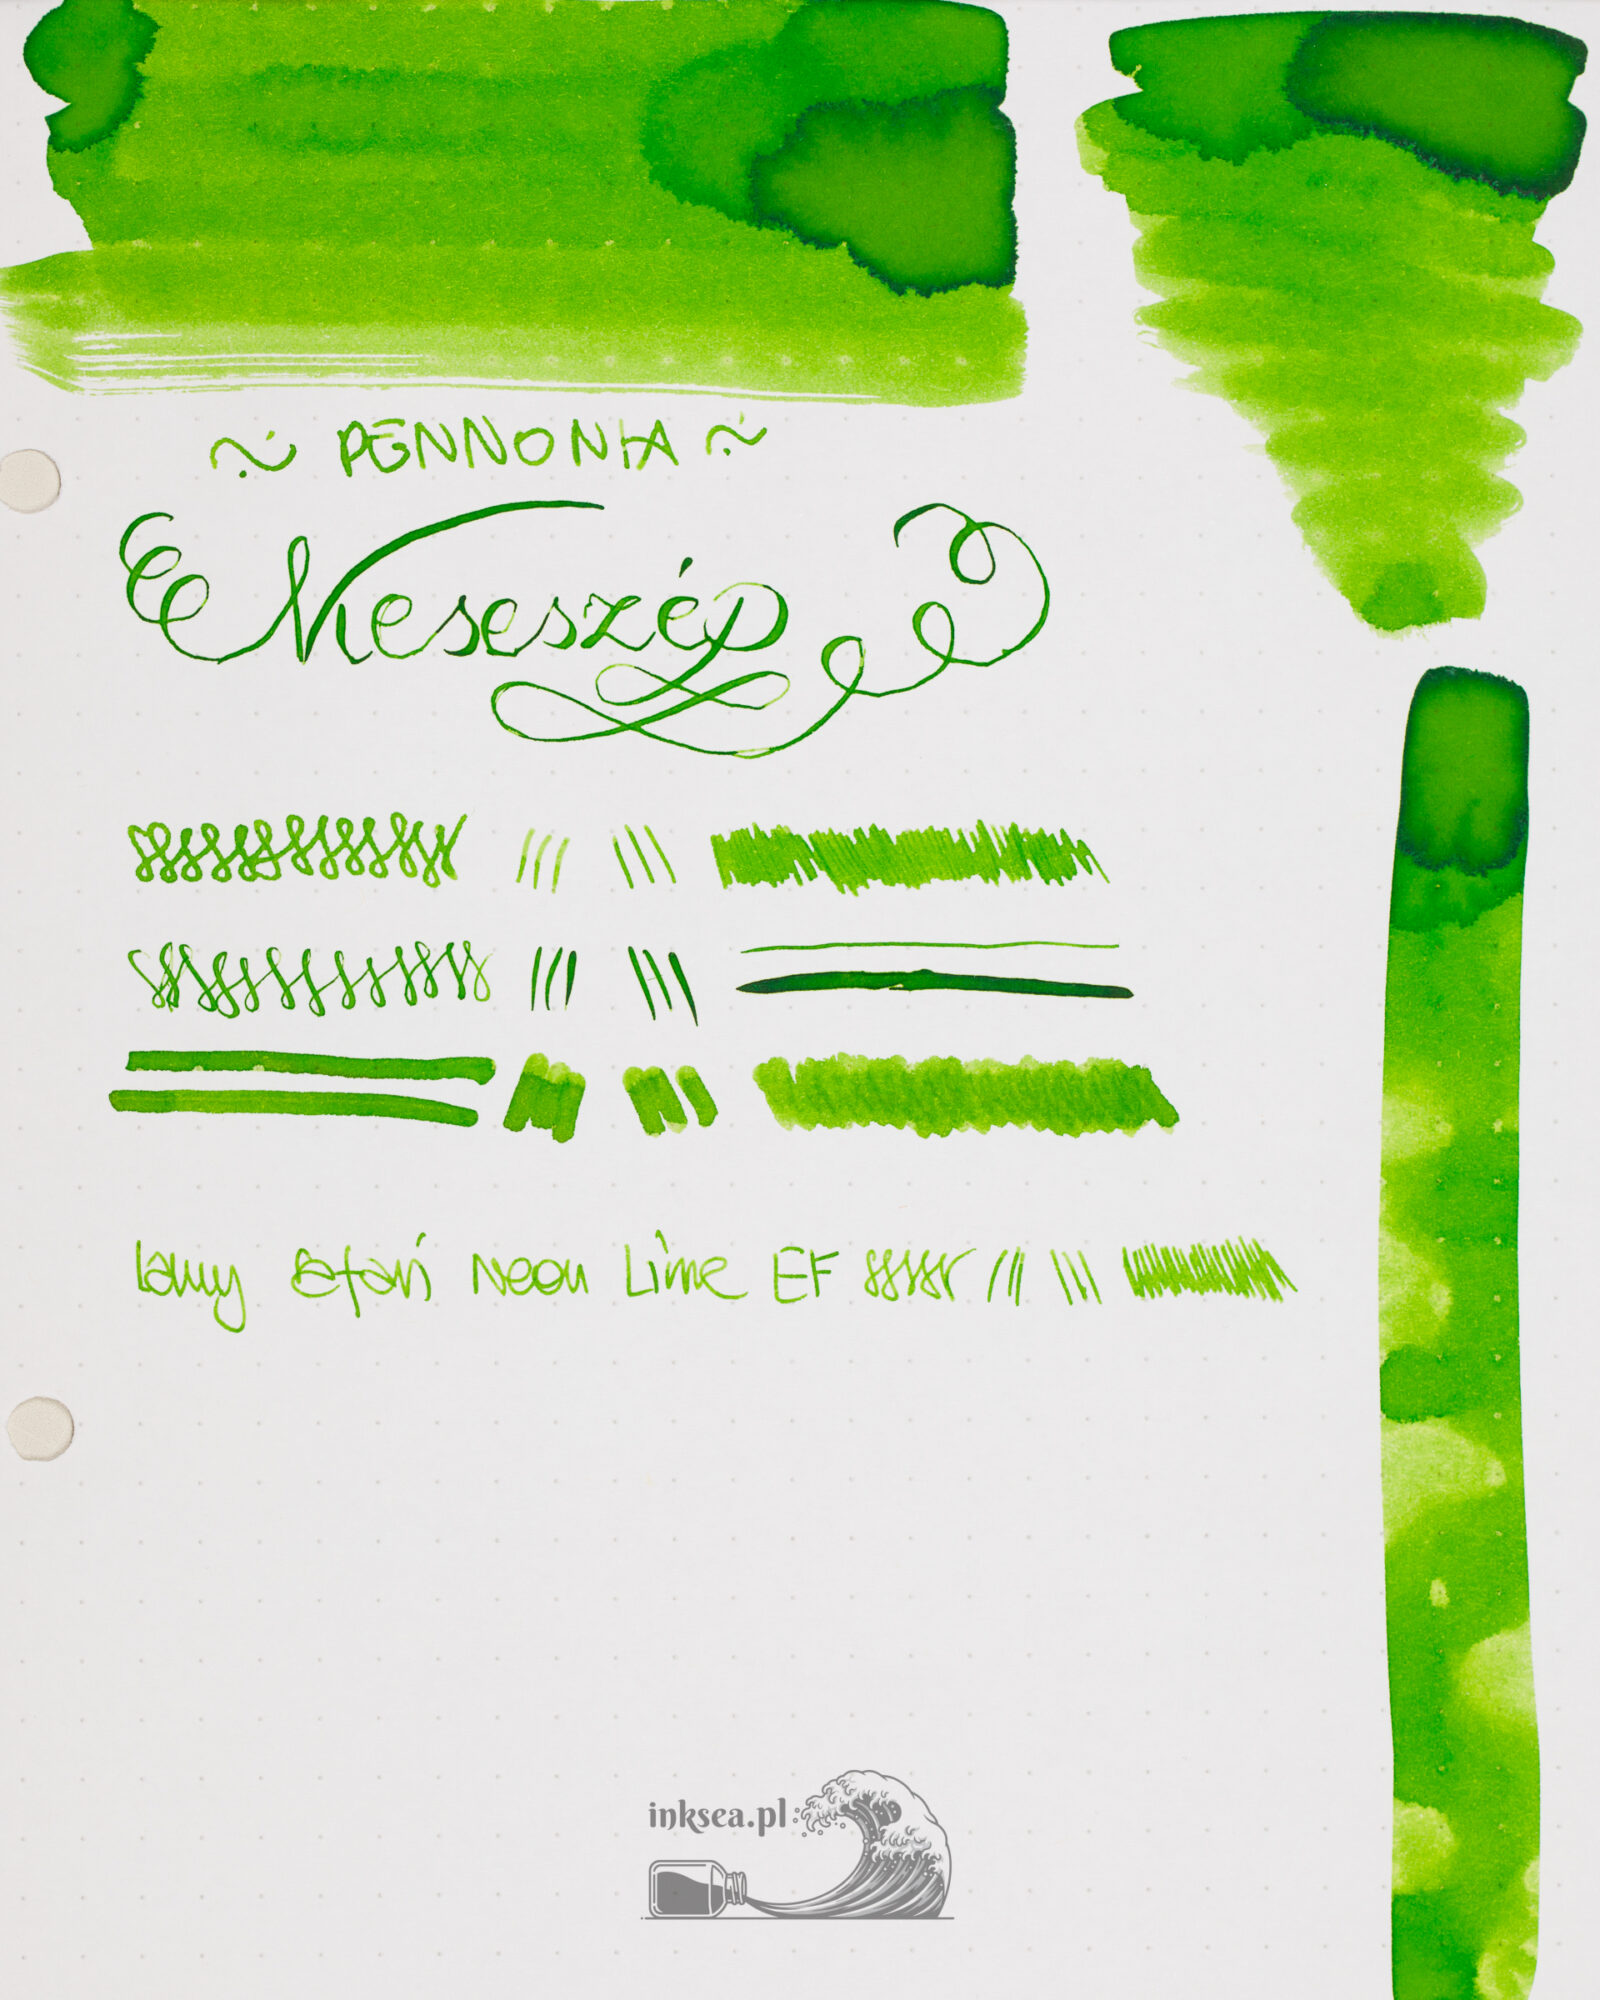 ~ PENNONIA ~
Meseszép
Lamy Safari Neon Lime EF
inksea.pl